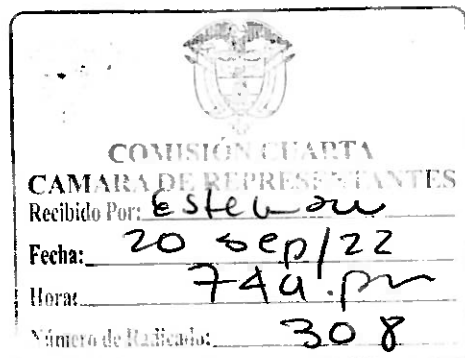 COMISIÓN CUARTA
CAMARA DE REPRESENTANTES
Recibido Por: Esteban
Fecha: 20 sep/22
Hora: 
Número de Radicado: 308